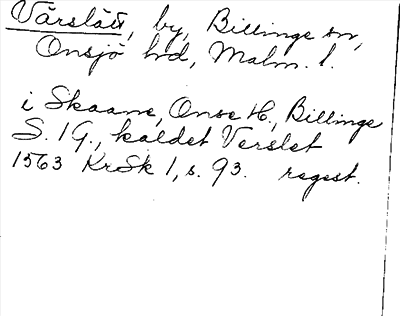 Vårslätt, by, Billinge sn,
Onsjö hd, Malm. l.
i Skaane, Onse H., Billinge
S. 1 G., kaldet Verslet
1563 KrSk 1, s. 93. regest.